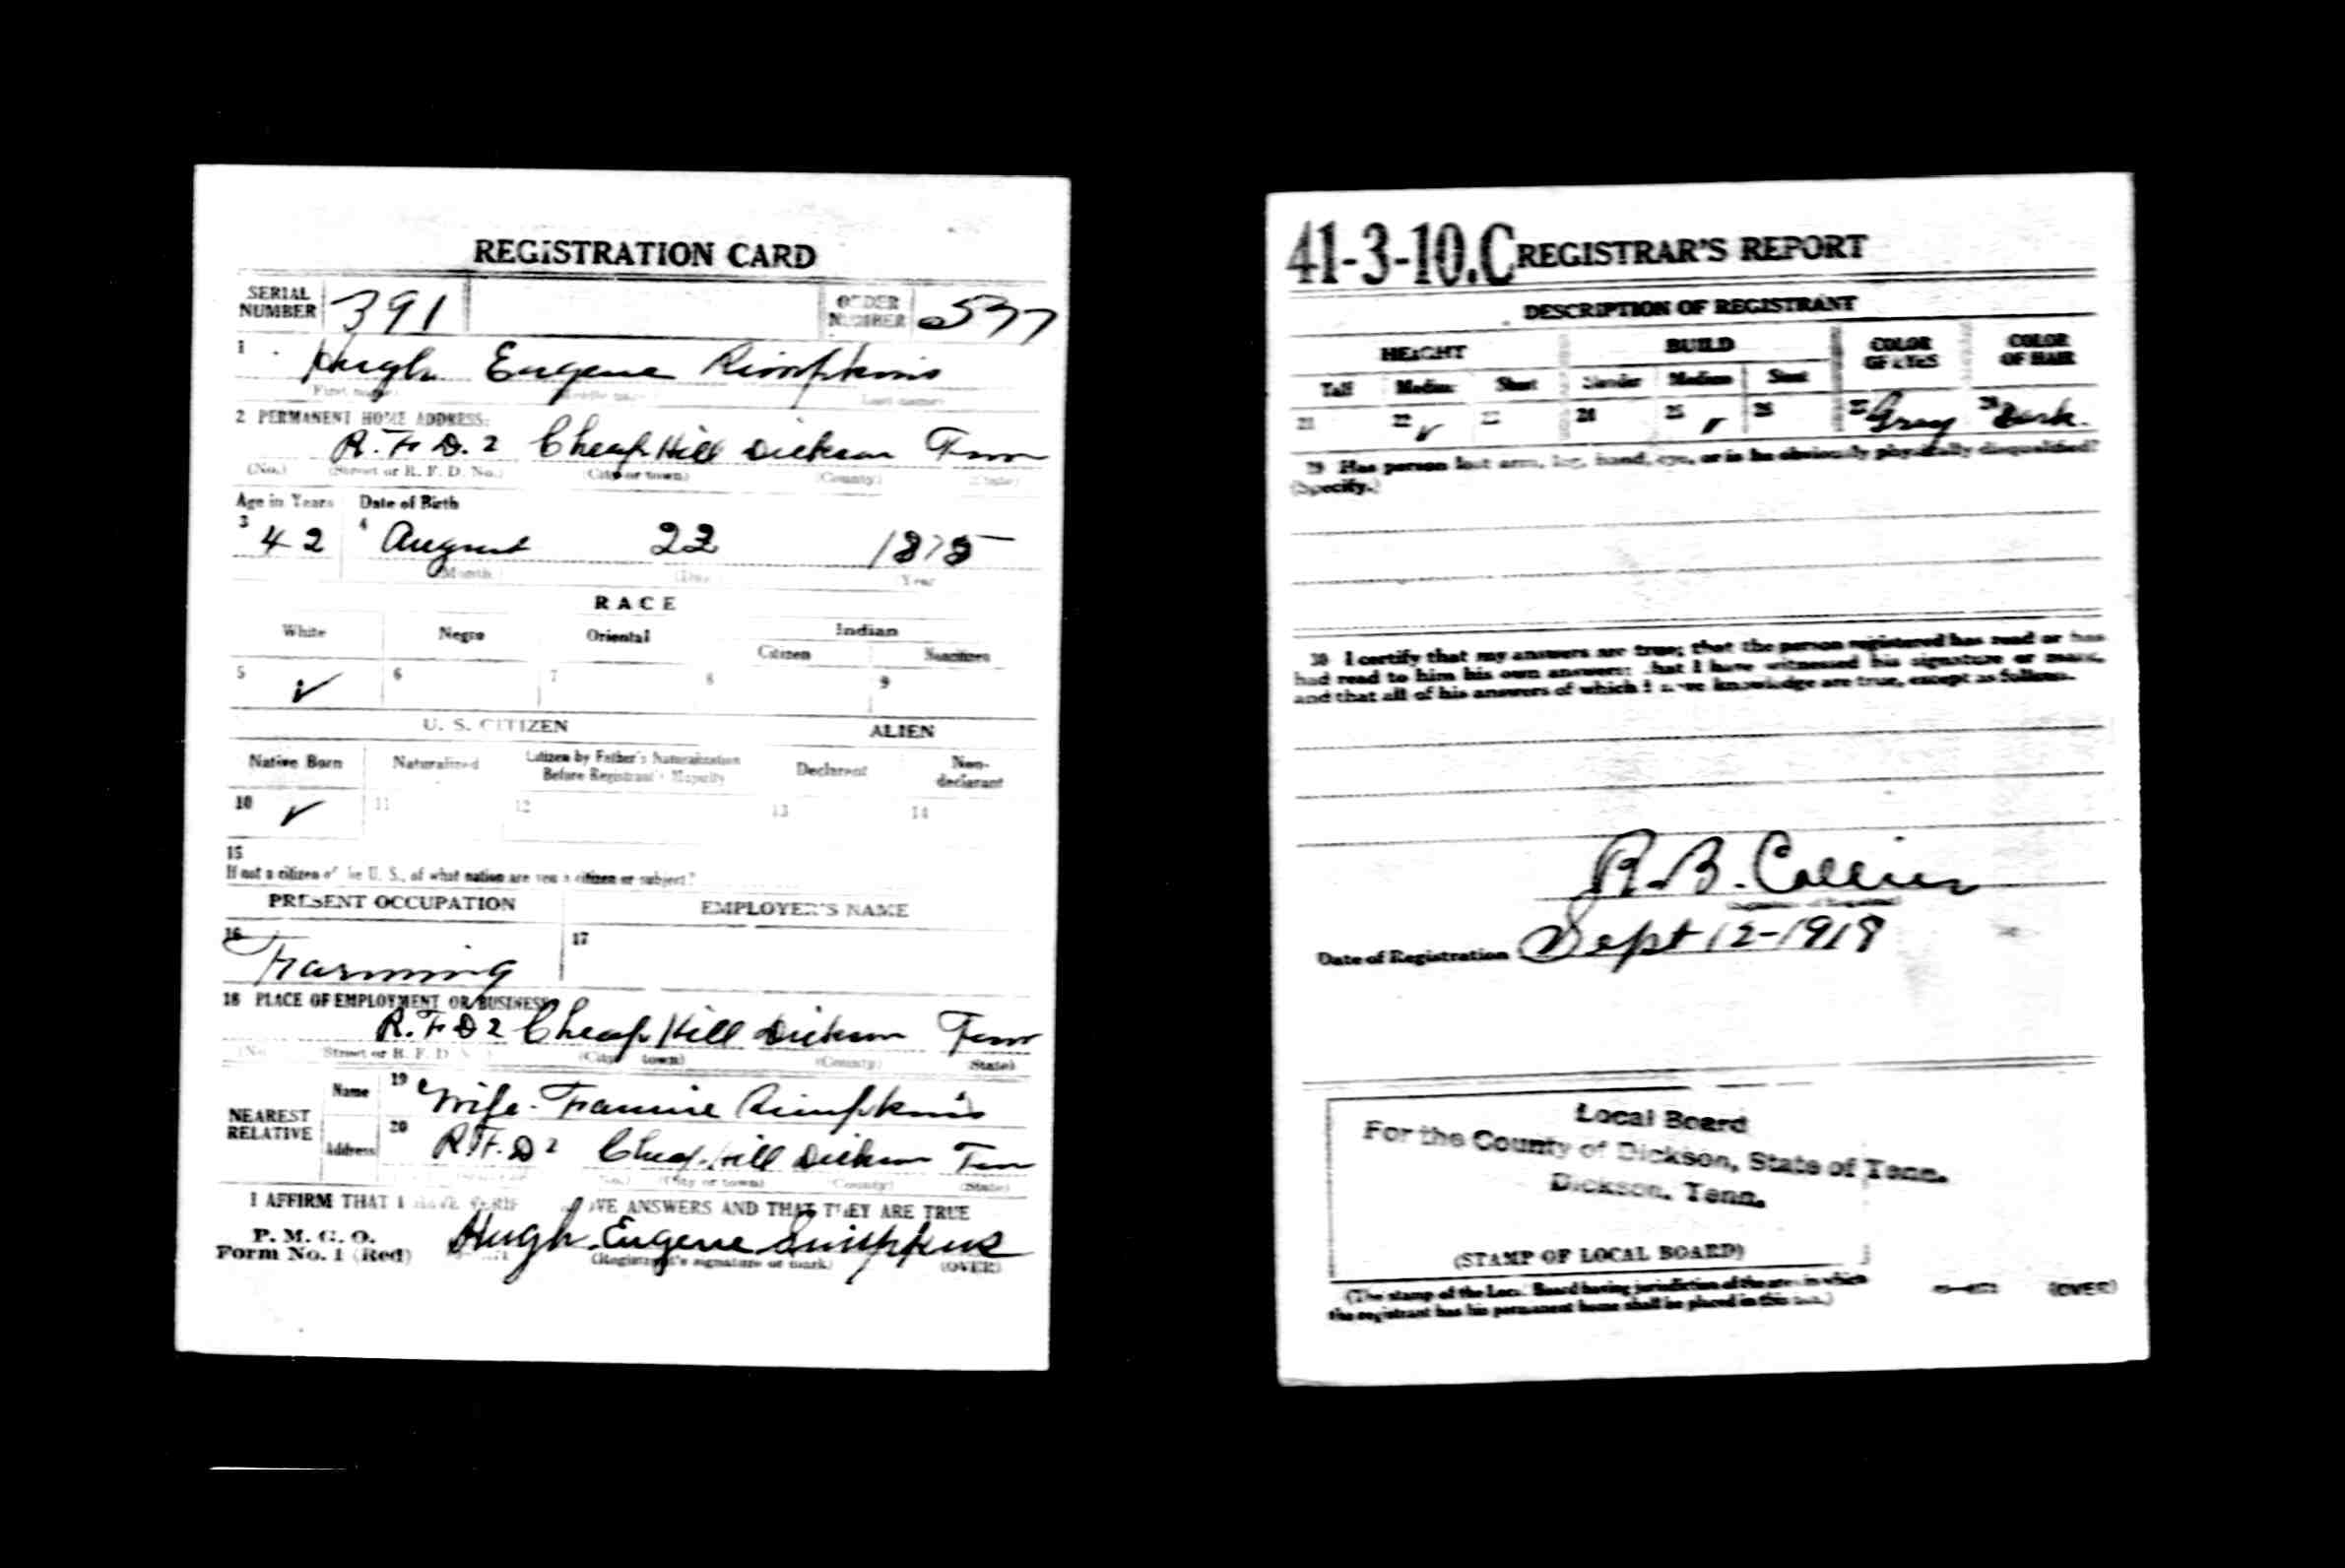 REGISTRATION CARD
SERIAL NUMBER 391 ORDER NUMBER 537
1 Hugh Eugene Rimpkins
First name Middle name Last name
2 PERMANENT HOME ADDRESS:
R. F. D. 2 Cheap Hill Dickson Tenn
(No.) (Street or R. F. D. No.) (City or town) (County) (State)
Age in Years Date of Birth
3 42 4 August 22 1875
Month Day Year
RACE
White Negro Oriental Indian
Citizen Noncitizen
5 ✓ 6 7 8 9
U. S. CITIZEN ALIEN
Native Born Naturalized Citizen by Father's Naturalization Before Registrant's Majority Declarant Non-declarant
10 ✓ 11 12 13 14
15
If not a citizen of the U. S., of what nation are you a citizen or subject?
PRESENT OCCUPATION EMPLOYER'S NAME
16 Farming 17
18 PLACE OF EMPLOYMENT OR BUSINESS:
R. F. D 2 Cheap Hill Dickson Tenn
(No.) Street or R. F. D. No.) (City or town) (County) State)
NEAREST RELATIVE Name 19 Wife. Fannie Rimpkins
Address 20 R. F. D 2 Cheap Hill Dickson Ten
(City or town) (County) (State)
I AFFIRM THAT I HAVE VERIFIED ABOVE ANSWERS AND THAT THEY ARE TRUE
P. M. G. O.
Form No. 1 (Red) Hugh. Eugene Simpkins
(Registrant's signature or mark) (OVER)
41-3-10.C REGISTRAR'S REPORT
DESCRIPTION OF REGISTRANT
HEIGHT BUILD COLOR OF EYES COLOR OF HAIR
Tall Medium Short Slender Medium Stout
21 22 ✓ 23 24 25 ✓ 26 27 Gray 28 Dark.
29 Has person lost arm, leg, hand, eye, or is he obviously physically disqualified?
(Specify.)
30 I certify that my answers are true; that the person registered has read or has
had read to him his own answers; that I have witnessed his signature or mark,
and that all of his answers of which I have knowledge are true, except as follows:
R. B. Collier
(Signature of Registrar)
Date of Registration Sept 12-1918
Local Board
For the County of Dickson, State of Tenn.
Dickson, Tenn.
(STAMP OF LOCAL BOARD)
(The stamp of the Local Board having jurisdiction of the area in which
the registrant has his permanent home shall be placed in this box.)
(OVER)